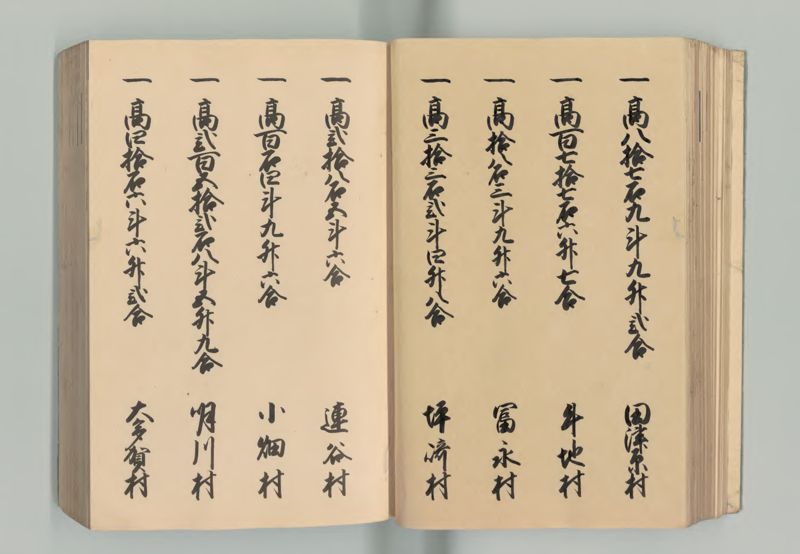 一 高八拾七石九斗九升弐合 田津原村
一 高百七拾七石六升七合 斗地村
一 高拾八石三斗九升六合 冨永村
一 高三拾三石弐斗四升八合 坪崎村
一 高弐拾八石五斗六合 連谷村
一 高百石四斗九升六合 小畑村
一 高弐百五拾弐石八斗五升九合 明川村
一 高四拾石六斗六升弐合 大多賀村